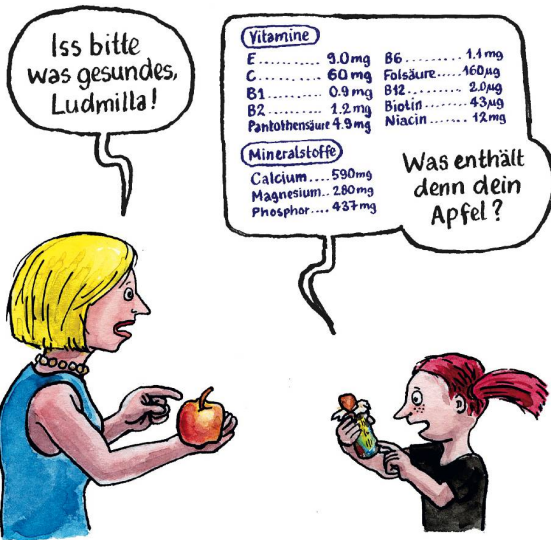 Iss bitte
was gesundes,
Ludmilla!
Vitamine
E .......... 9.0mg
C .......... 60mg
B1 ......... 0.9mg
B2 ......... 1.2mg
Pantothensäure 4.9mg
B6 ......... 1.1mg
Folsäure ..... 160µg
B12 ......... 2.0µg
Biotin ...... 43µg
Niacin ...... 12mg
Mineralstoffe
Calcium .... 590mg
Magnesium .. 280mg
Phosphor .... 437mg
Was enthält
denn dein
Apfel?